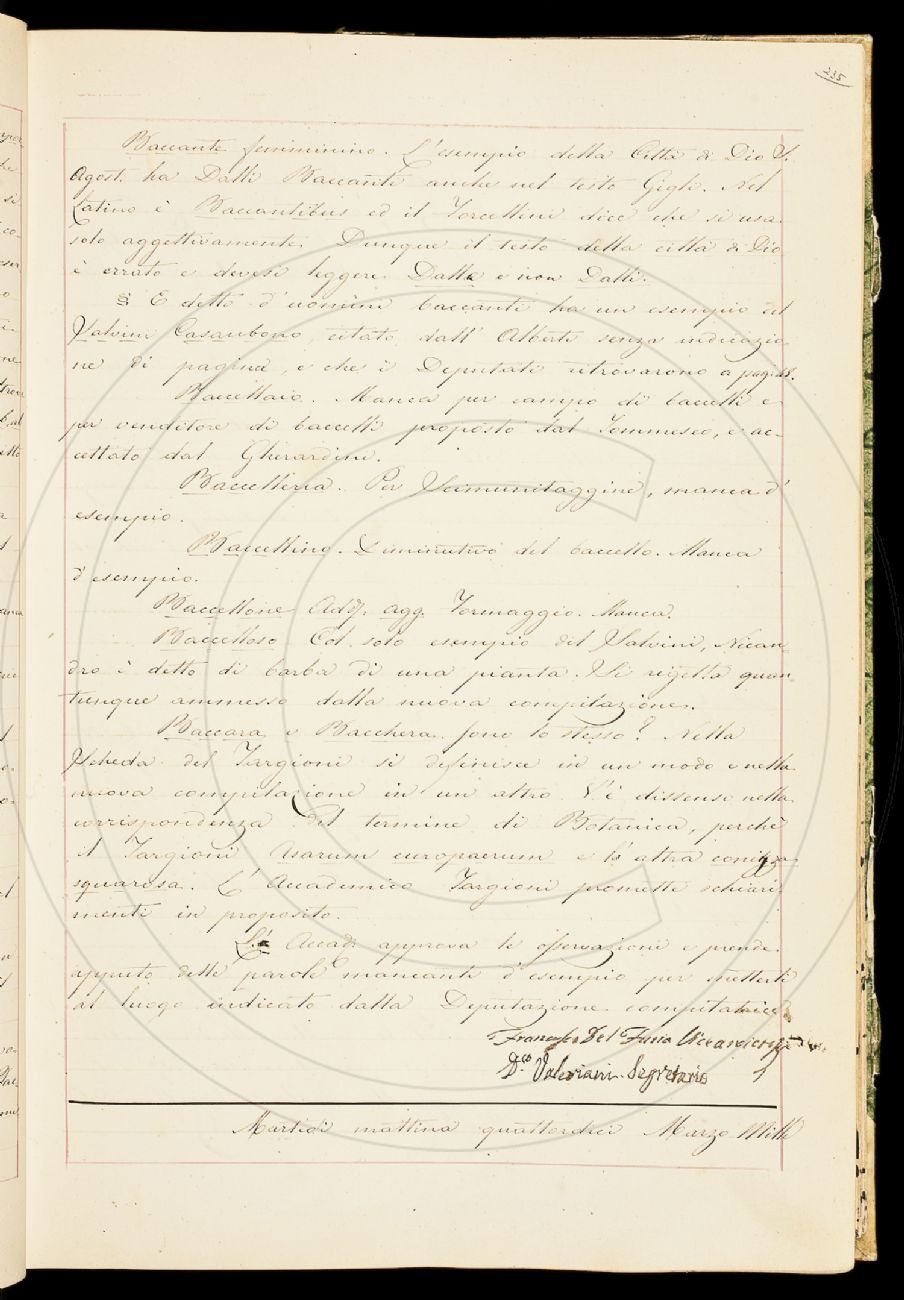 235
Baccante femminino. L'esempio della Città di Dio S.
Agost. ha Dalli Baccanti anche nel testo Gigli. Nel
Latino è Baccantibus ed il Forcellini dice che si usa
solo aggettivamente. Dunque il testo della città di Dio
è errato e devesi leggere Dalle e non Dalli.
§ E detto d'uomini baccanti ha un esempio del
Salvini Casaubono, citato dall'Alberti senza indicazio
ne di pagina, e che i Deputati ritrovarono a pag.
Baccellaio. Manca per campo di baccelli e
per venditore di baccelli proposto dal Tommaseo, e ac-
cettato dal Gherardini.
Baccelleria. Per Scimunitaggine, manca d'
esempio.
Baccellino. Diminutivo del baccello. Manca
d'esempio.
Baccellone Add. agg. Formaggio. Manca.
Baccelloso Col solo esempio del Salvini, Nican-
dro è detto di barba di una pianta. Si rigetta quan-
tunque ammesso dalla nuova compilazione.
Baccara e Bacchera sono lo stesso? Nella
Scheda del Targioni si definisce in un modo e nella
nuova compilazione in un altro. V'è dissenso nella
corrispondenza del termine di Botanica, perchè
il Targioni Asarum europaerum e l'altra coniza
squarosa. L'Accademico Targioni promette schiari
menti in proposito.
L'Accad. approva le osservazioni e prende
appunto delle parole mancanti d'esempio per metterli
al luogo indicato dalla Deputazione compilatrice
Francesco Del Furia Vicearciconsolo
Dco. Valeriani Segretario
Martedì mattina quattordici Marzo Mille